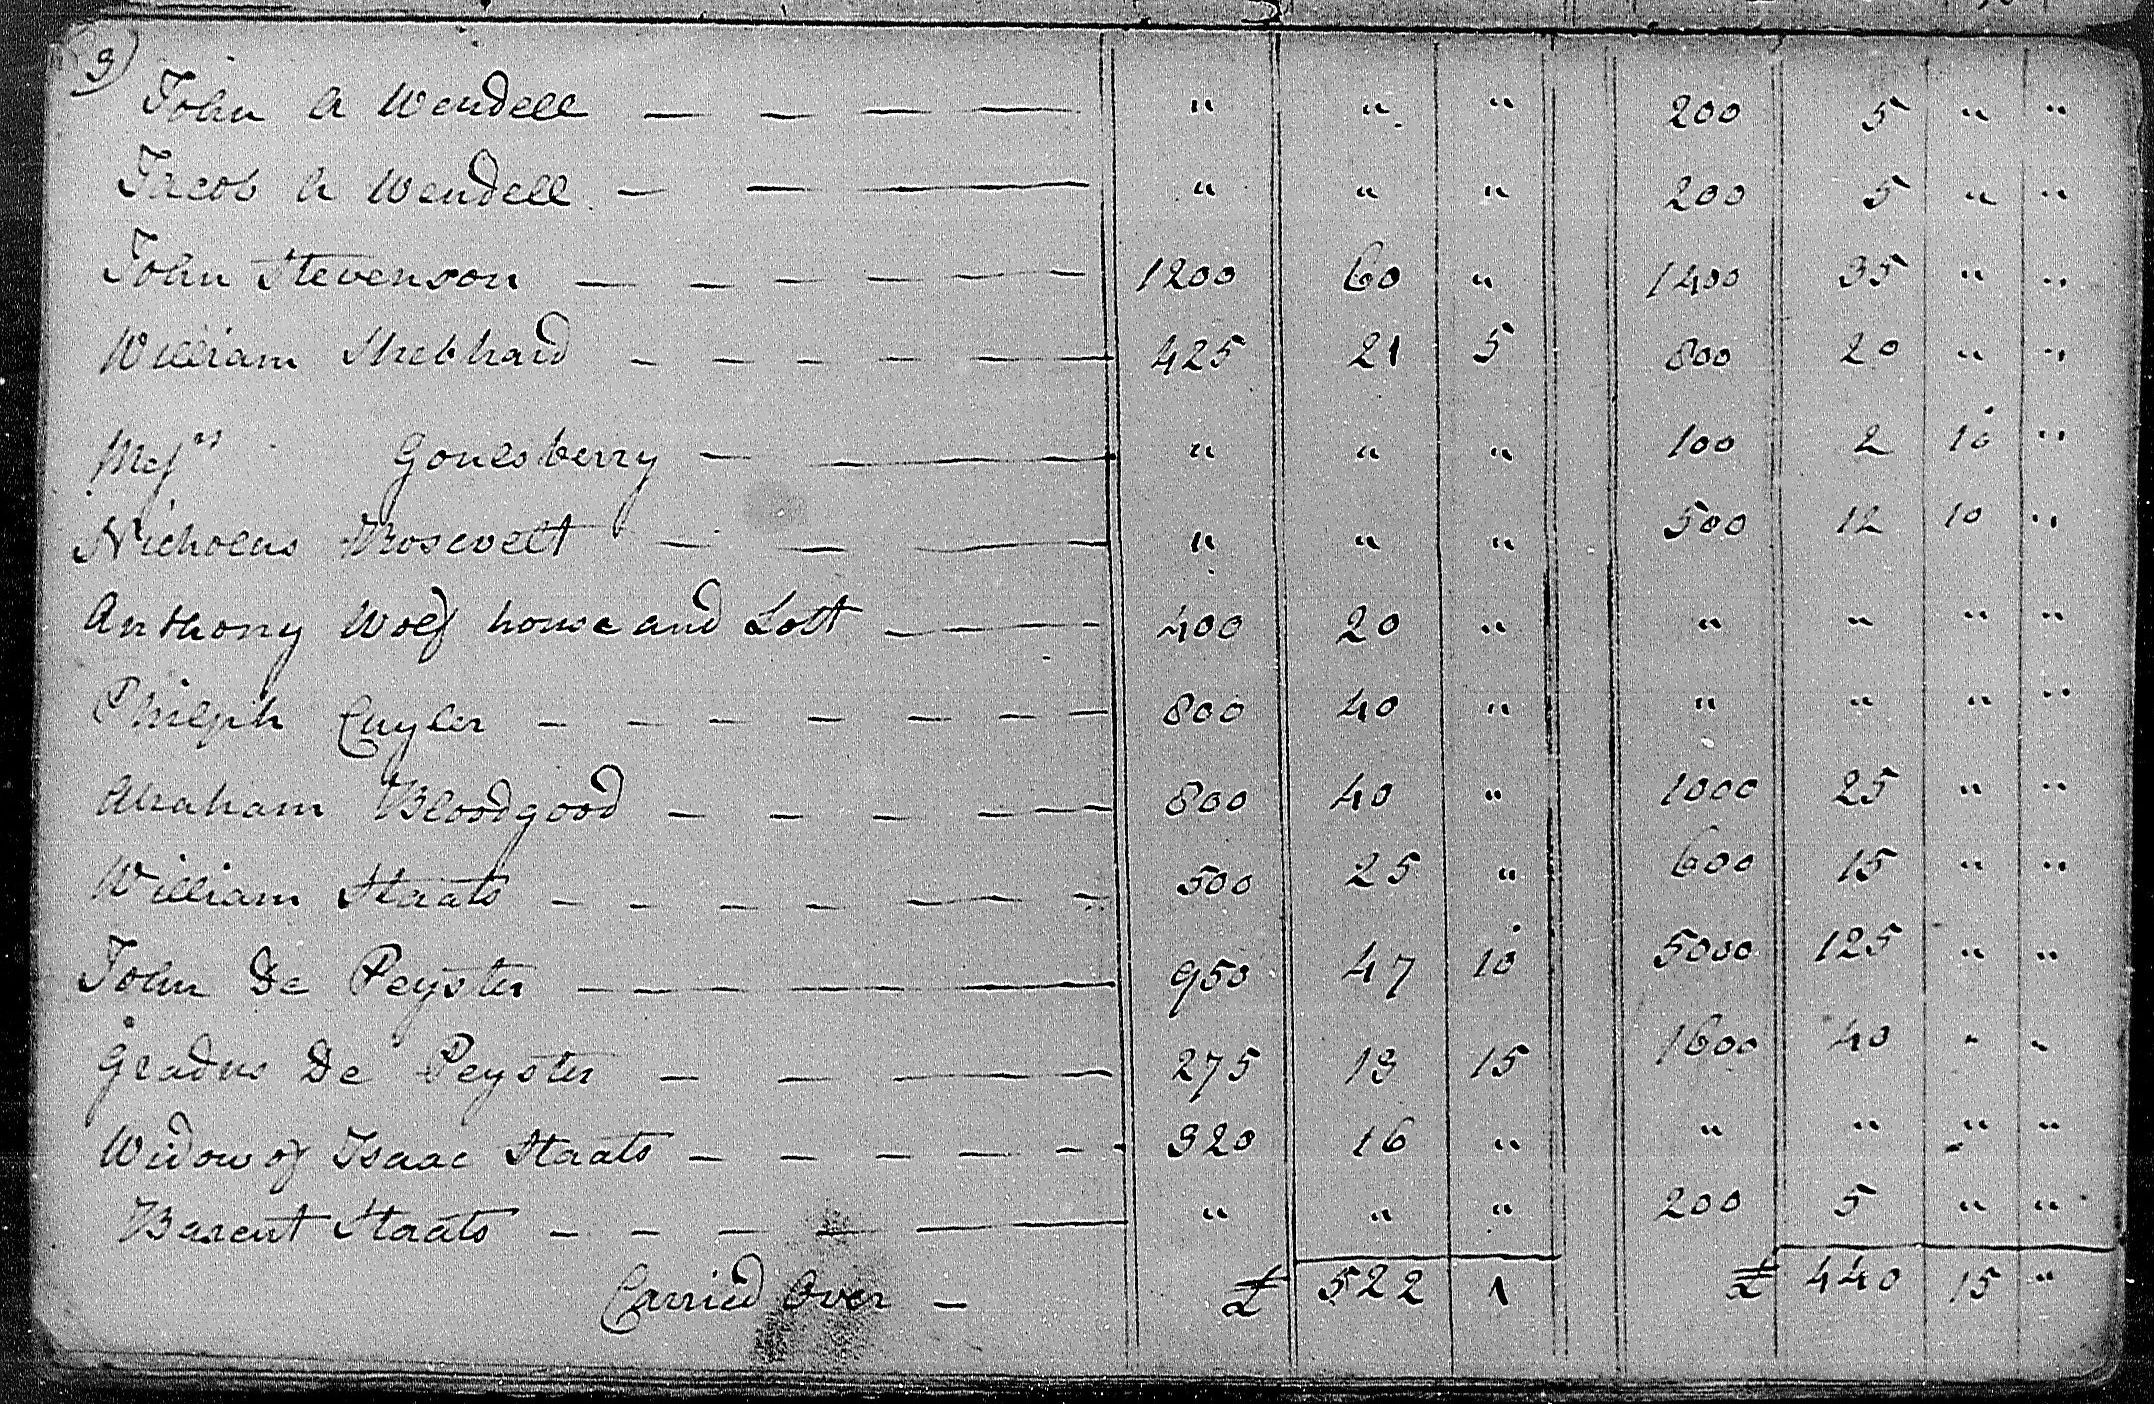 3)
John A Wendell — — — — " " " 200 5 " "
Jacob A Wendell — — — " " " 200 5 " "
John Stevenson — — — — — — 1200 60 " 1400 35 " "
William Shebhard — — — — — — 425 21 5 800 20 " "
Messrs Gouldsberry — — " " " 100 2 10 "
Nicholas Rosevelt — — — " " " 500 12 10 "
Anthony Wolf house and Lott — — — 400 20 " " " " "
Philiph Cuyler — — — — — — — 800 40 " " " " "
Abraham Bloodgood — — — — — 800 40 " 1000 25 " "
William Staats — — — — — — — 500 25 " 600 15 " "
John De Peyster — — — — — 950 47 10 5000 125 " "
Gradus De Peyster — — — — 275 13 15 1600 40 " "
Widow of Isaac Staats — — — — — - 320 16 " " " " "
Barent Staats — — — — — " " " 200 5 " "
Carried Over — £ 522 1 £ 440 15 "